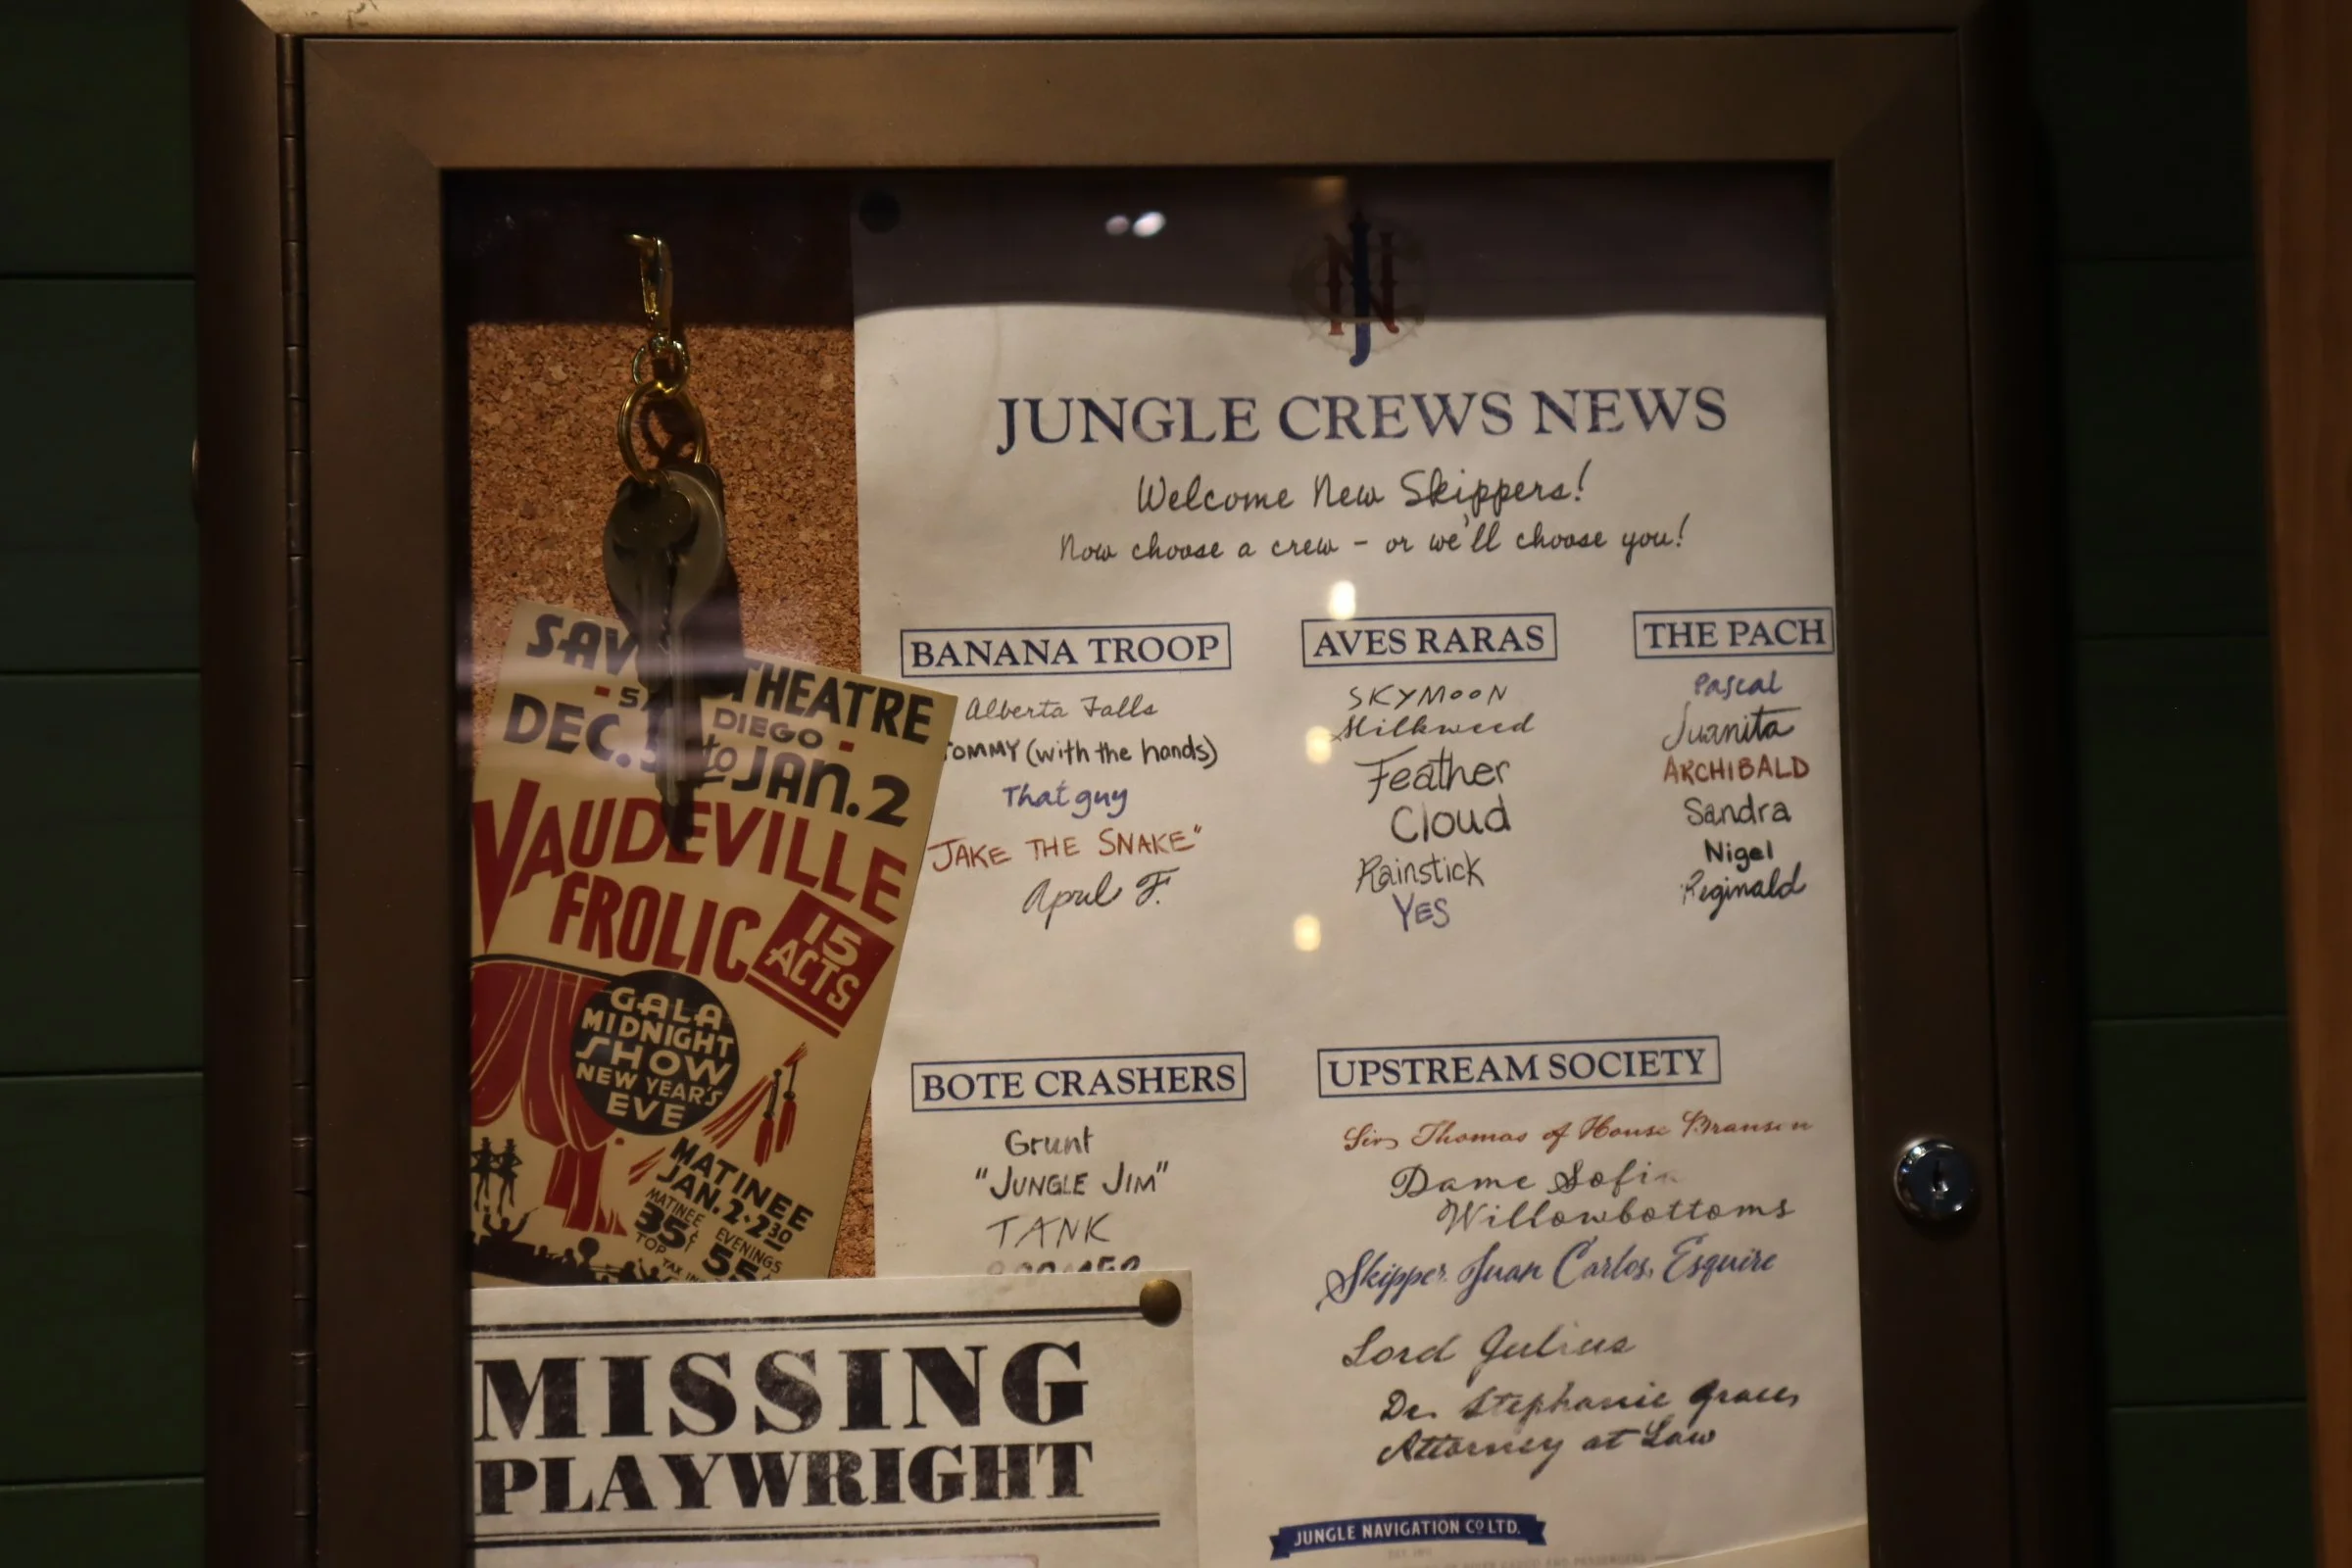 JUNGLE CREWS NEWS
Welcome New Skippers!
Now choose a crew – or we'll choose you!
BANANA TROOP
Alberta Falls
TOMMY (with the hands)
That guy
JAKE THE SNAKE"
April F.
AVES RARAS
SKYMOON
Milkweed
Feather
Cloud
Rainstick
YES
THE PACH
Pascal
Juanita
ARCHIBALD
Sandra
Nigel
Reginald
BOTE CRASHERS
Grunt
"JUNGLE JIM"
TANK
UPSTREAM SOCIETY
Sir Thomas of House Branson
Dame Sofia
Willowbottoms
Skipper Juan Carlos, Esquire
Lord Julius
Dr. Stephanie Graces
Attorney at Law
JUNGLE NAVIGATION CO LTD.
THEATRE
DIEGO
DEC. to JAN. 2
VAUDEVILLE
FROLIC
15
ACTS
GALA
MIDNIGHT
SHOW
NEW YEAR'S
EVE
MATINEE
JAN. 2 · 2 30
MATINEE
35¢
TOP
EVENINGS
55¢
MISSING
PLAYWRIGHT